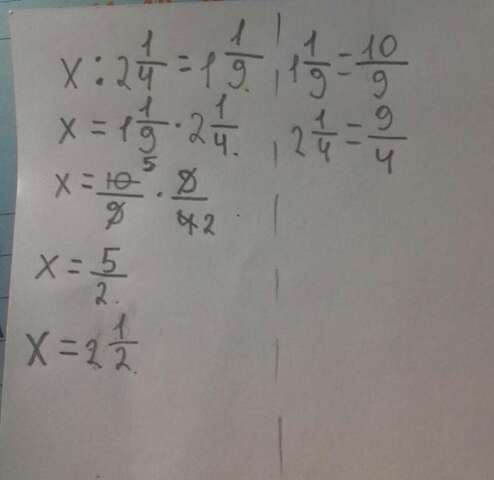 x : 2 1/4 = 1 1/9
x = 1 1/9 · 2 1/4
x = 10 5/9 · 9/4 2
x = 5/2
x = 2 1/2
1 1/9 = 10/9
2 1/4 = 9/4